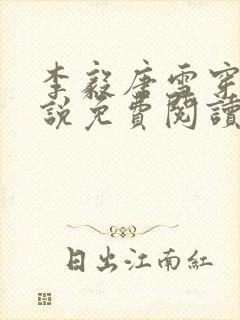 李毅唐雪穿
說免費閱讀
日出江南紅